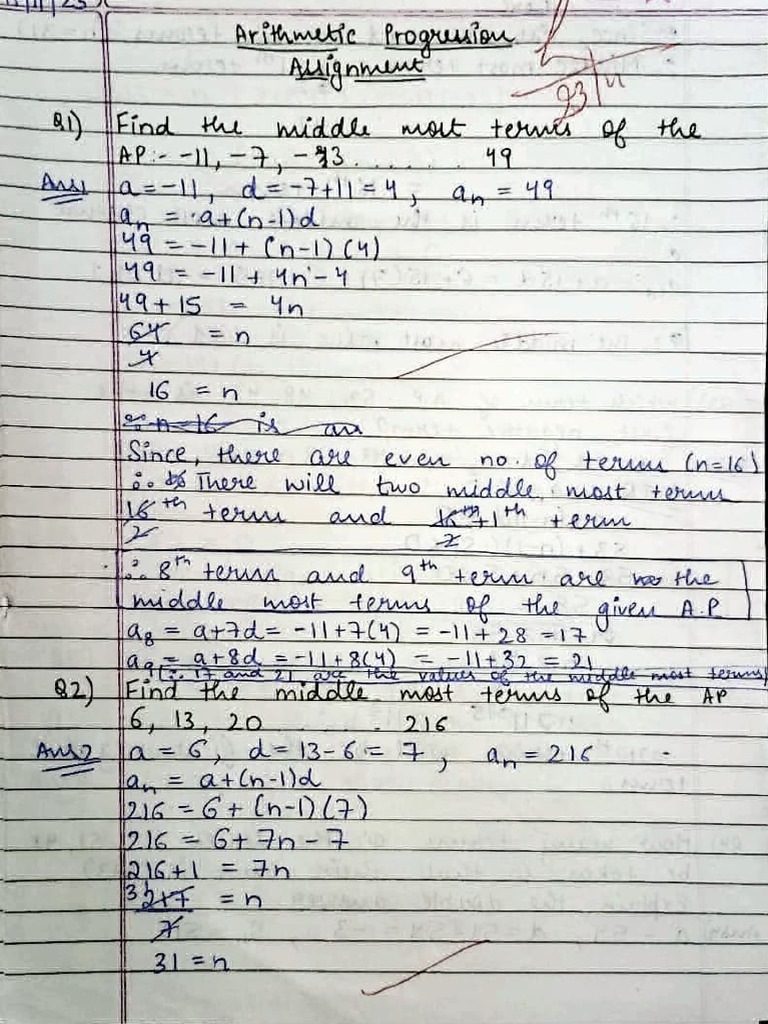 11/11/23
Arithmetic Progression
Assignment
23/11
Q1) Find the middle most terms of the
AP:- -11, -7, -3 ...... 49
Ans1 a = -11, d = -7+11 = 4, an = 49
an = a+(n-1)d
49 = -11 + (n-1)(4)
49 = -11 + 4n - 4
49+15 = 4n
64/4 = n
16 = n
∴ n=16 is an
Since, there are even no. of terms (n=16)
∴ There will two middle most term
16/2 th term and 16/2 th +1 th term
∴ 8th term and 9th term are the
middle most terms of the given A.P
a8 = a+7d = -11+7(4) = -11+28 = 17
a9 = a+8d = -11+8(4) = -11+32 = 21
∴ 17 and 21 are the values of the middle most terms
Q2) Find the middle most terms of the AP
6, 13, 20 ........ 216
Ans2 a = 6, d = 13-6 = 7, an = 216
an = a+(n-1)d
216 = 6 + (n-1)(7)
216 = 6 + 7n - 7
216+1 = 7n
31 217/7 = n
31 = n